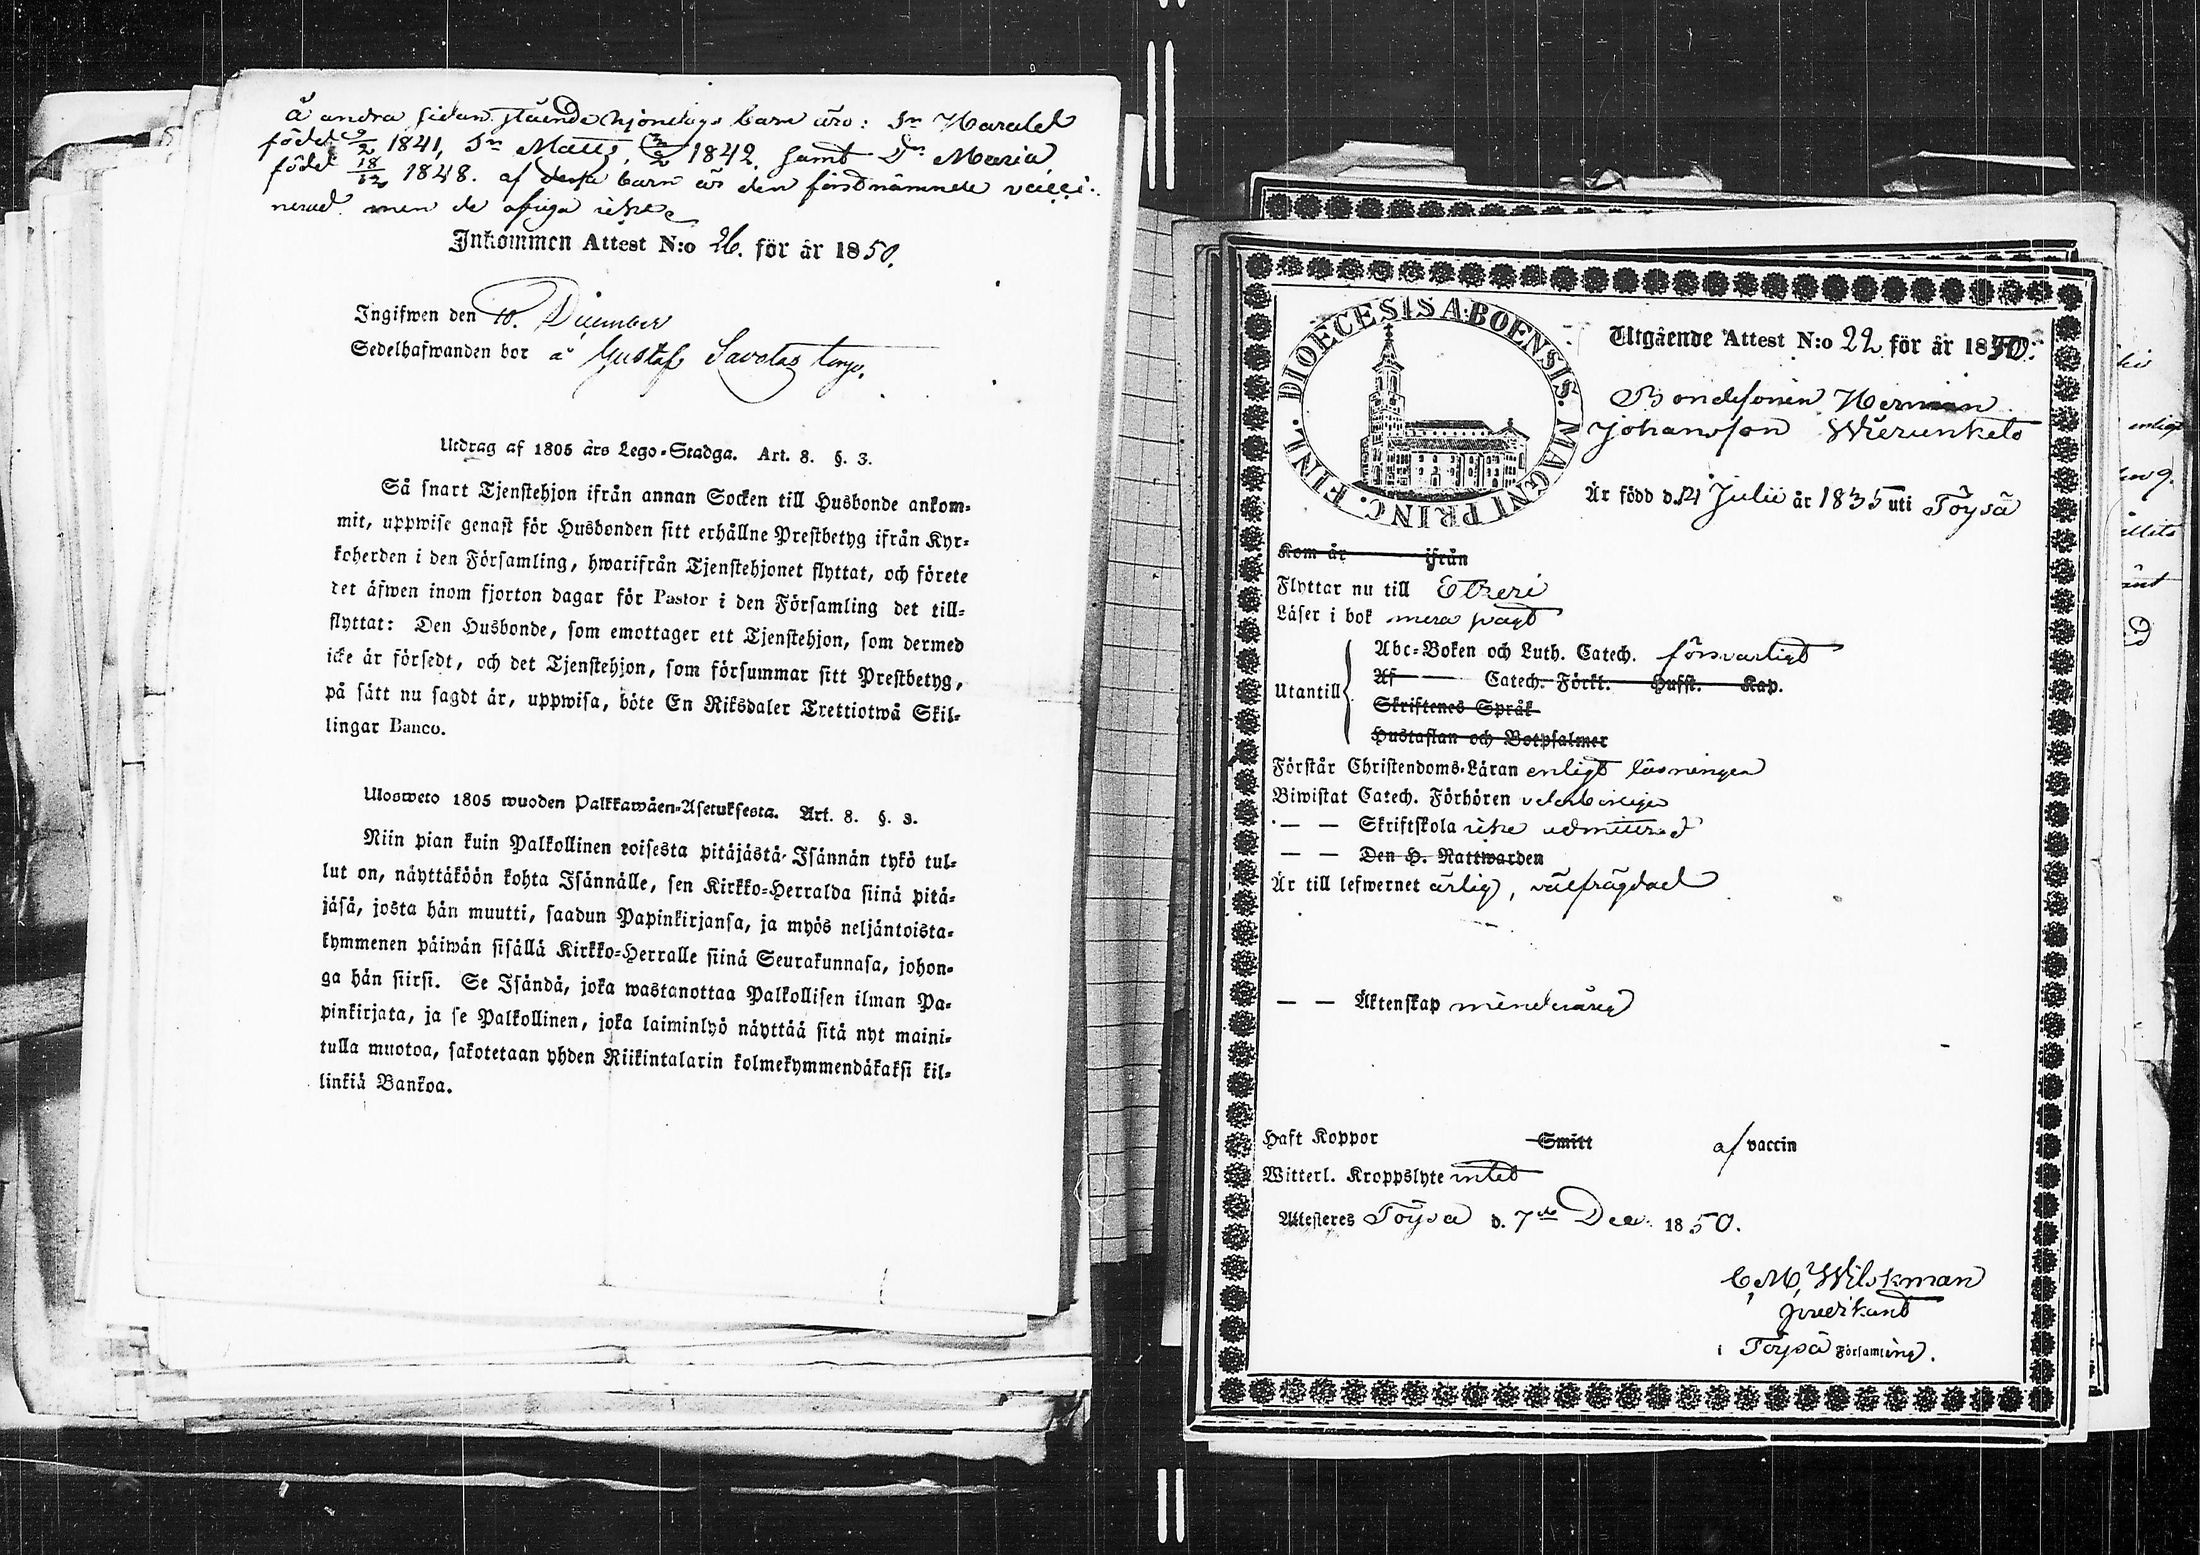 å andra sidan stående hjonelags barn äro: Sn Harald
född 5/2 1841, Sn Matts, 2/2 1842. samt Dr Maria
född 18/12 1848. af dessa barn är den förstnämnde vacci-
nerad. men de öfriga icke
Inkommen Attest N:o 26. för år 1850.
Ingifwen den 10. December
Sedelhafwanden bor å Gustaf Savolas torp.
Utdrag af 1805 års Lego-Stadga. Art. 8. §. 3.
Så snart Tjenstehjon ifrån annan Socken till Husbonde ankom-
mit, uppwise genast för Husbonden sitt erhållne Prestbetyg ifrån Kyr-
koherden i den Församling, hwarifrån Tjenstehjonet flyttat, och förete
det äfwen inom fjorton dagar för Pastor i den Församling det till-
flyttat: Den Husbonde, som emottager ett Tjenstehjon, som dermed
icke är försedt, och det Tjenstehjon, som försummar sitt Prestbetyg,
på sätt nu sagdt är, uppwisa, böte En Riksdaler Trettiotwå Skil-
lingar Banco.
Ulosweto 1805 wuoden Palkkawäen-Asetuksesta. Art. 8. §. 3.
Niin pian kuin Palkollinen toisesta pitäjästä Isännän tykö tul-
lut on, näyttäköön kohta Isännälle, sen Kirkko-Herralda siinä pitä-
jäsä, josta hän muutti, saadun Papinkirjansa, ja myös neljäntoista-
kymmenen päiwän sisällä Kirkko-Herralle siinä Seurakunnasa, johon-
ga hän siirsi. Se Isändä, joka wastanottaa Palkollisen ilman Pa-
pinkirjata, ja se Palkollinen, joka laiminlyö näyttää sitä nyt maini-
tulla muotoa, sakotetaan yhden Riikintalarin kolmekymmendäkaksi kil-
linkiä Bankoa.
FINL. DIOECESIS ABOENSIS. MAGNI PRINC.
Utgående Attest N:o 22 för år 1850.
Bondesonen Herman
Johansson Wierunketo
Är född d. 21 Julii år 1835 uti Töysä
Kom år ifrån
Flyttar nu till Etseri
Läser i bok mera svagt
Abc-Boken och Luth. Catech. försvarligt
Utantill Af Catech. Förkl. Hufst. Kap.
Skriftenes Språk
Hustaflan och Botpsalmer
Förstår Christendoms-Läran enligt läsningen
Biwistat Catech. Förhören vederbörligen
— — Skriftskola icke admitterad
— — Den H. Nattwarden
Är till lefwernet ärlig, välfrägdad
— — Äktenskap minderårig
Haft Koppor Smitt af vaccin
Witterl. Kroppslyte intet
Attesteres Töysä d. 7de Dec. 1850.
C. M. Wilskman
predikant
i Töysä Församling.